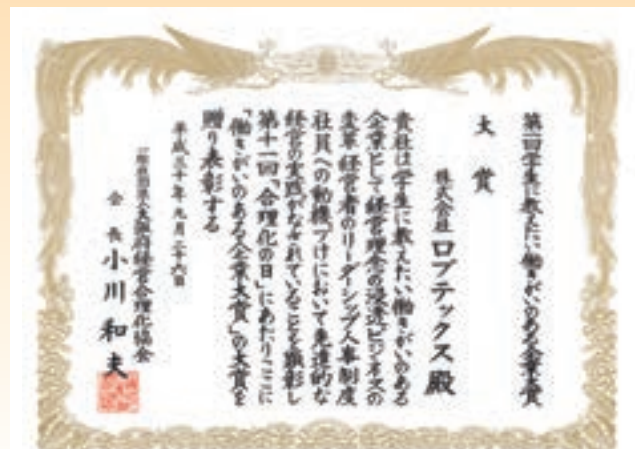 第一回学生に教えたい働きがいのある企業大賞
大賞
株式会社 ロブテックス 殿
貴社は学生に教えたい働きがいのある
企業として経営理念の浸透ビジネスの
変革経営者のリーダーシップ人事制度
社員への動機づけにおいて先進的な
経営の実践がなされていることを讃彰し
第十一回「合理化の日」にあたりここに
「働きがいのある企業大賞」の大賞を
贈り表彰する
平成三十年九月二十六日
一般社団法人大阪府経営合理化協会
会長 小川和夫